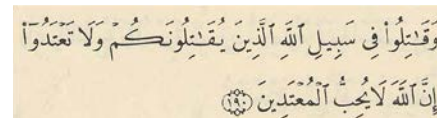 وَقَٰتِلُوا۟ فِى سَبِيلِ ٱللَّهِ ٱلَّذِينَ يُقَٰتِلُونَكُمْ وَلَا تَعْتَدُوٓا۟
إِنَّ ٱللَّهَ لَا يُحِبُّ ٱلْمُعْتَدِينَ ۝١٩٠